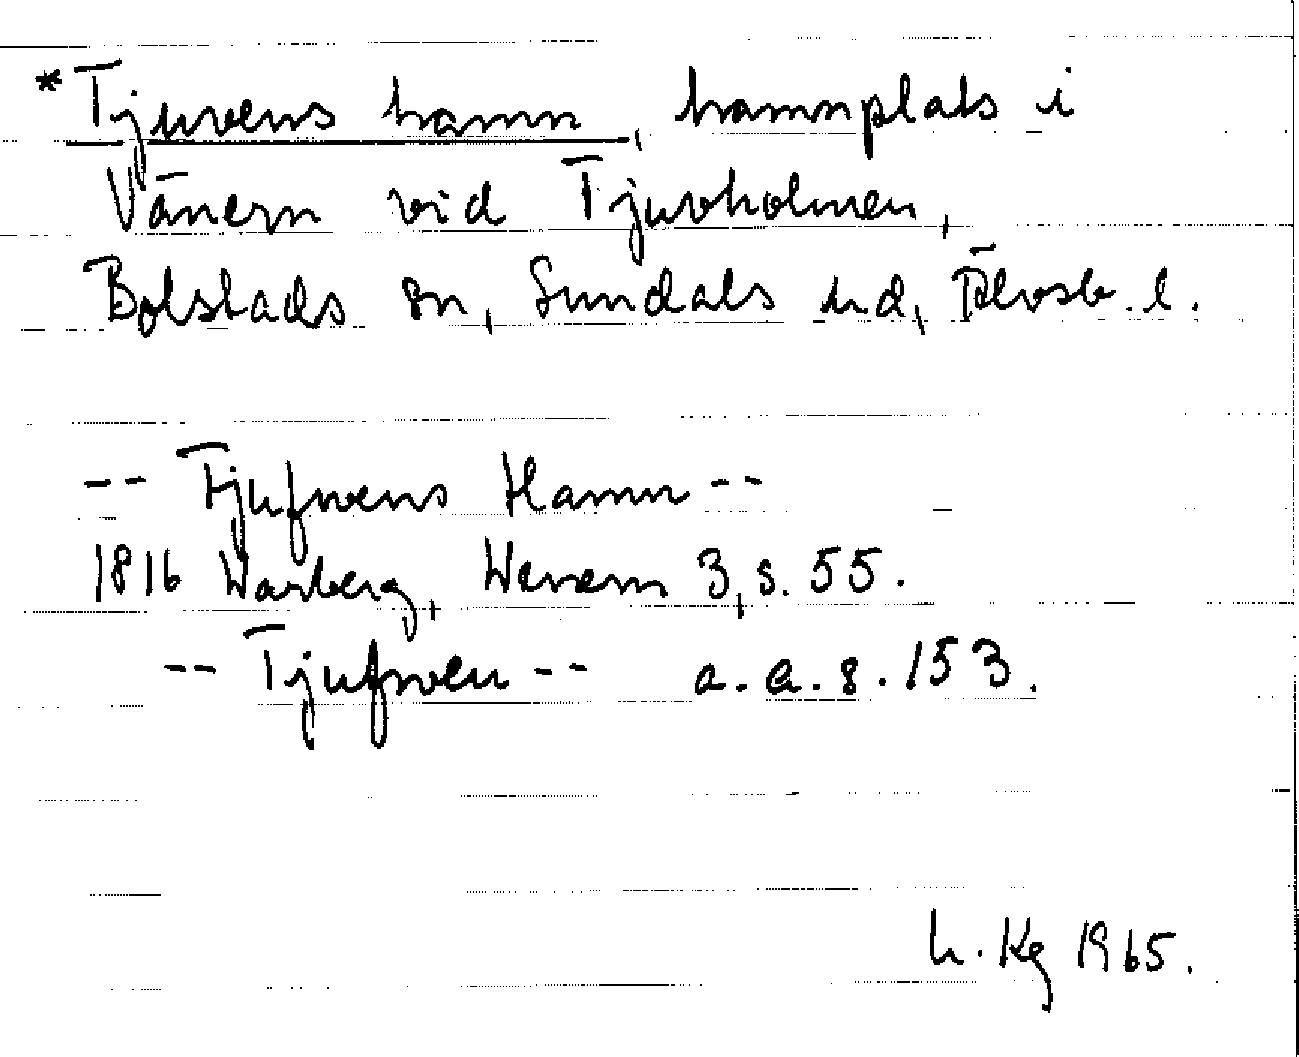 *Tjuvens hamn, hamnplats i
Vänern vid Tjuvholmen,
Bolstads sn, Sundals hd, Älvsb. l.
-- Tjufwens Hamn --
1816 Warberg, Wenern 3, s. 55.
-- Tjufwen -- a. a. s. 153.
h. Kg 1965.